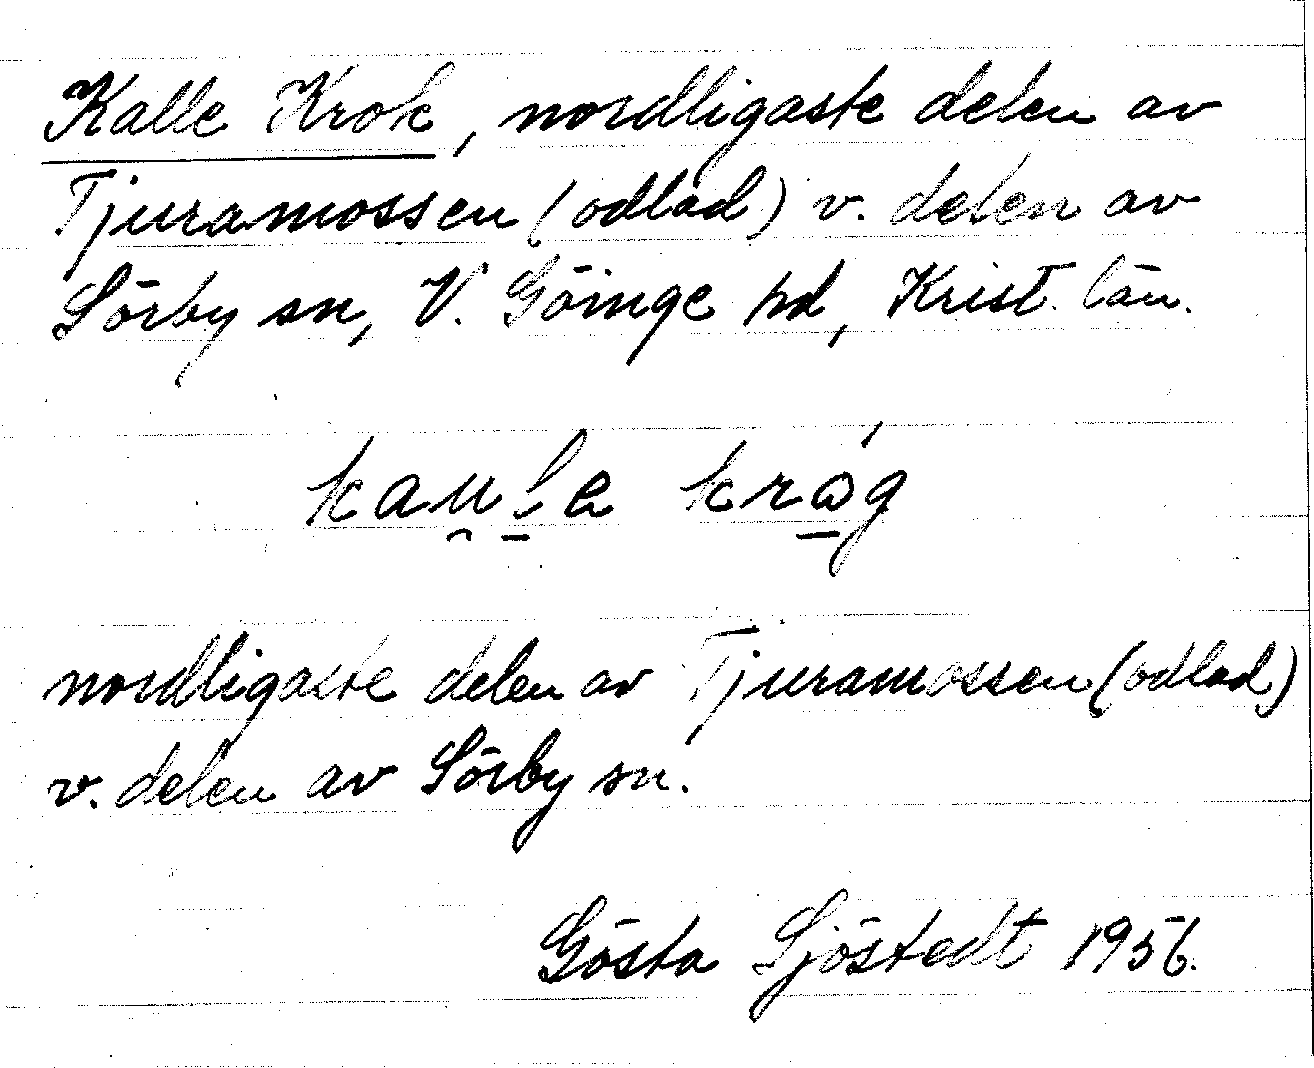 Kalle Krok, nordligaste delen av
Tjuramossen (odlad) v. delen av
Sörby sn, V. Göinge hd, Krist. län.
nordligaste delen av Tjuramossen (odlad)
v. delen av Sörby sn.
Gösta Sjöstedt 1956.